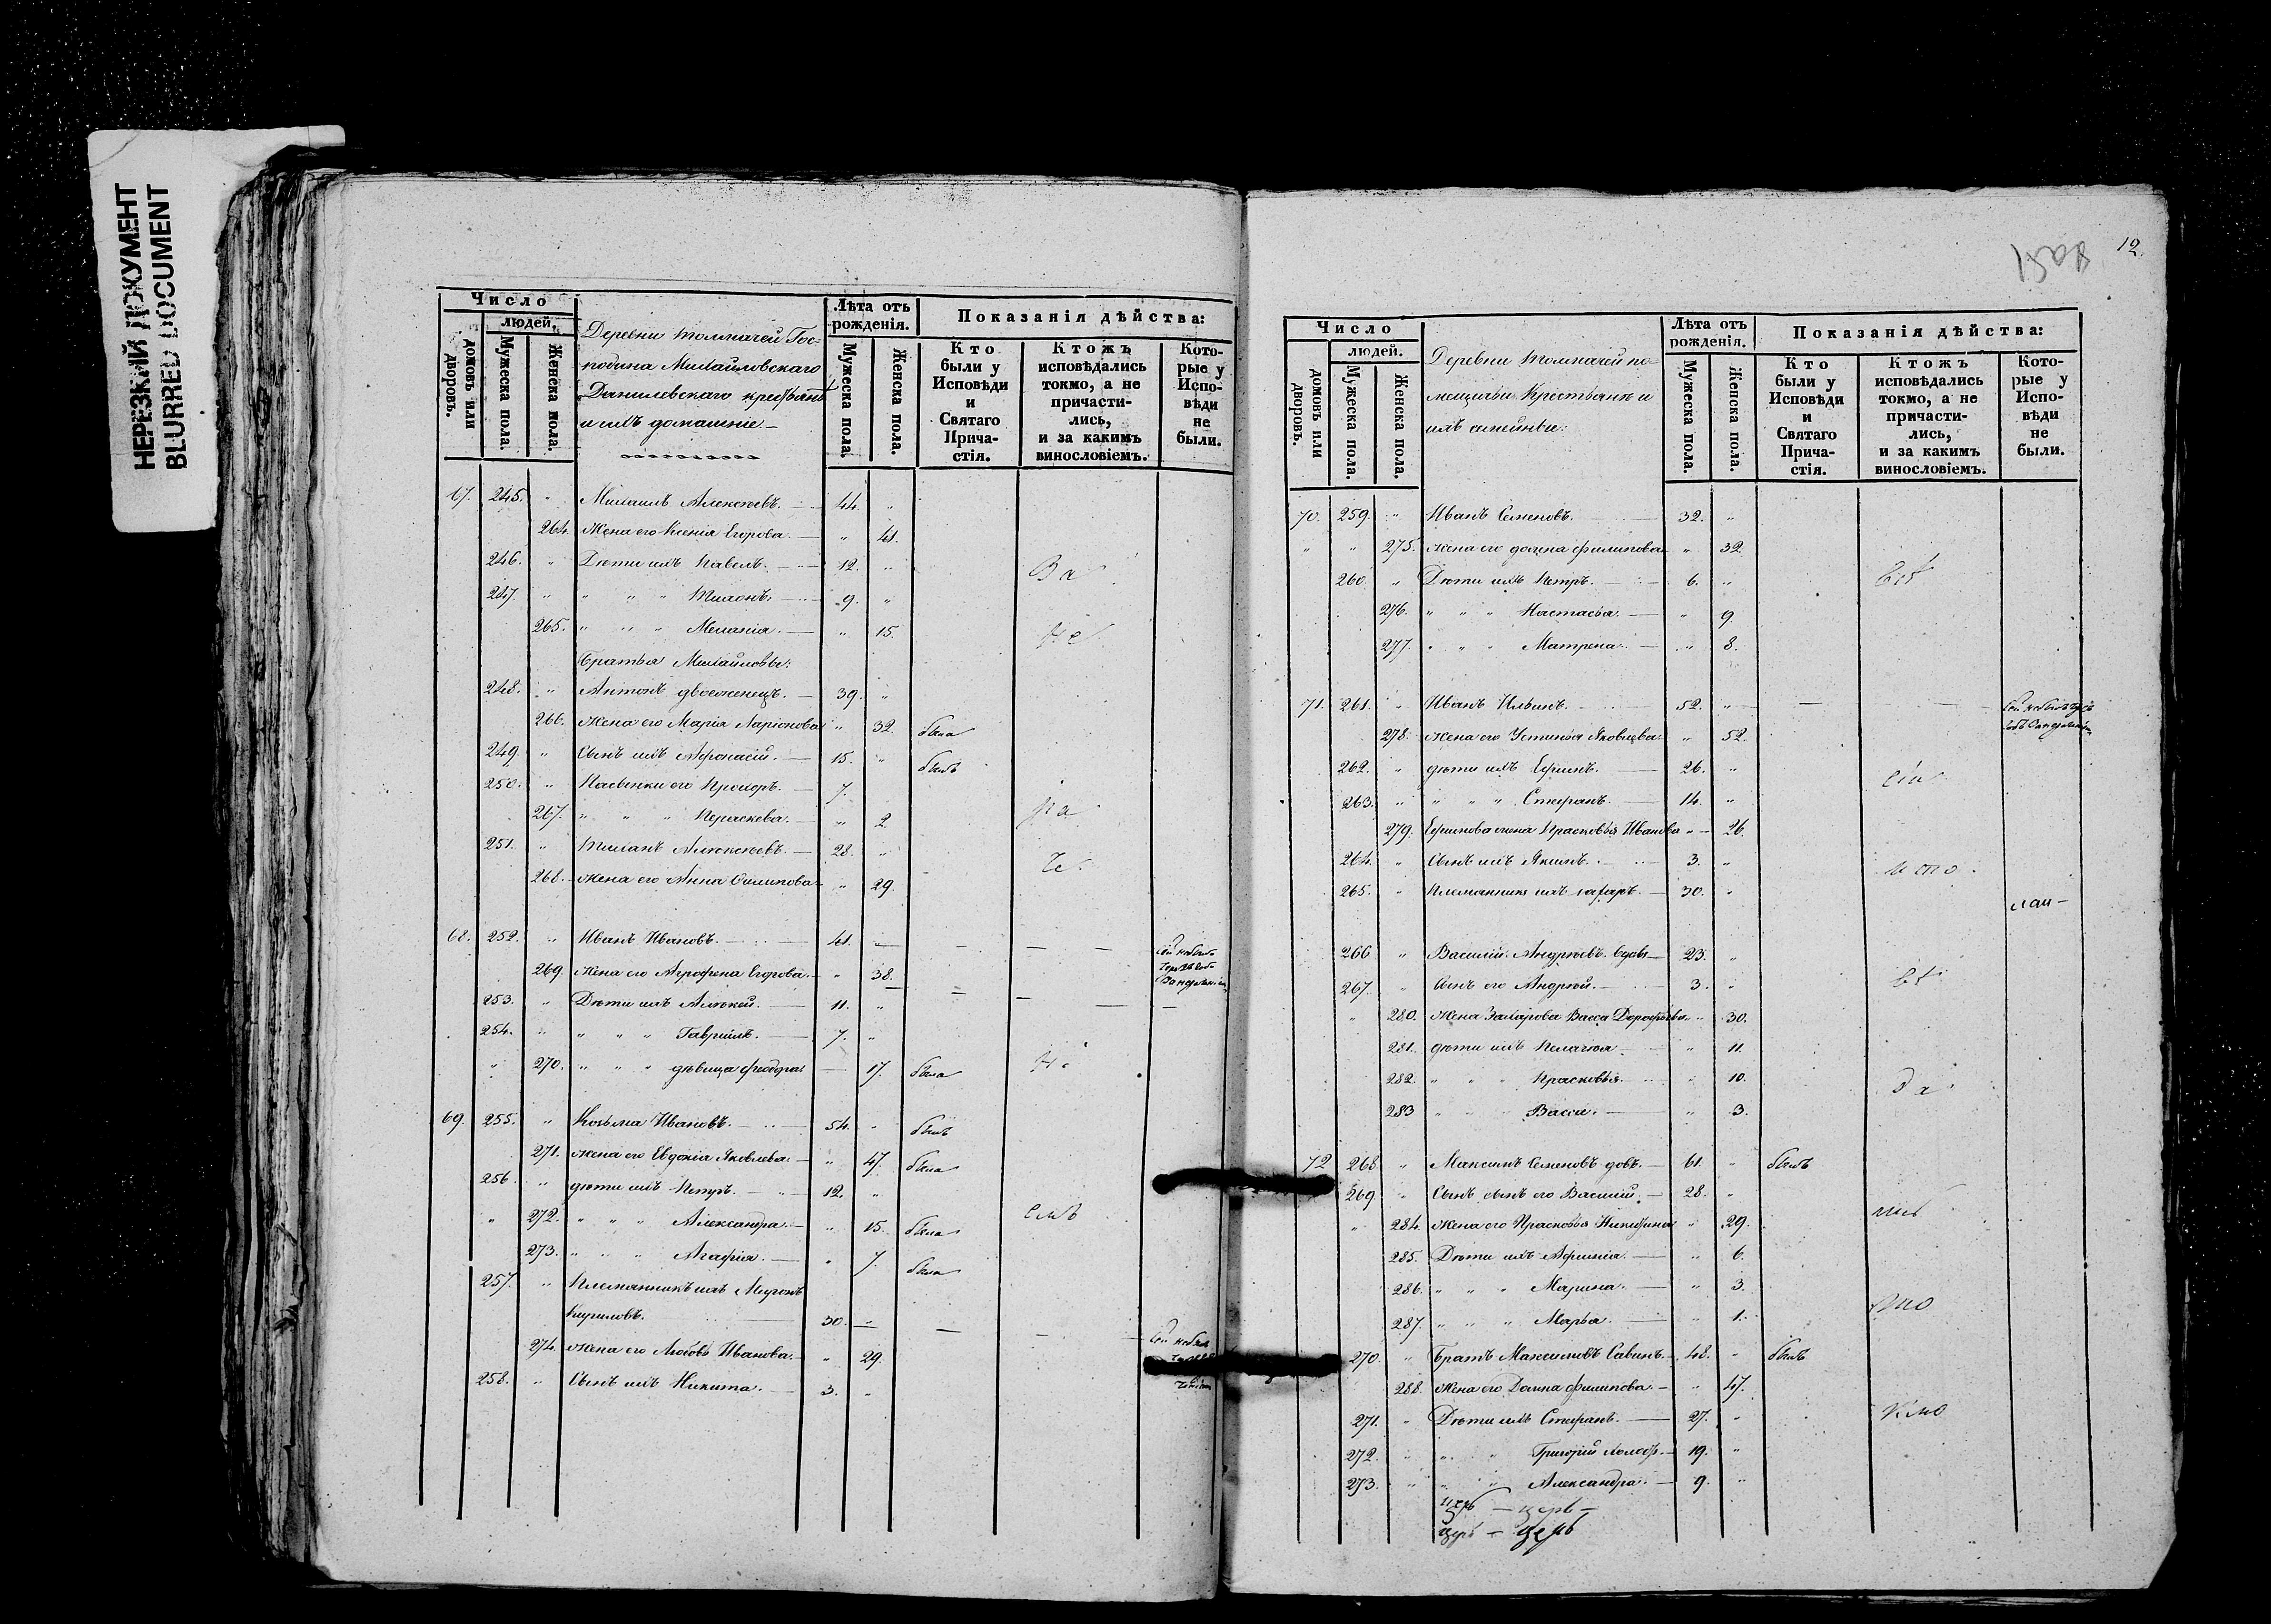 НЕРЕЗКИЙ ДОКУМЕНТ
BLURRED DOCUMENT
Число
людей.
домовъ или дворовъ.
Мужеска пола.
Женска пола.
Деревни Толмачей Гос-
подина Михайловскаго
Данилевскаго крестьянѣ
и ихъ домашніе.
Лѣта отъ рожденія.
Мужеска пола.
Женска пола.
Показанія дѣйства:
Кто были у Исповѣди и Святаго Причастія.
Ктожъ исповѣдались токмо, а не причастились, и за какимъ винословіемъ.
Которые у Исповѣди не были.
67. 245. " Михаилъ Алексѣевъ. 44. "
264. Жена его Ксенія Егорова. " 41.
246. " Дѣти ихъ Павелъ. 12. " За
247. " " " " Тихонъ. 9. "
265. " " " Меланія. " 15. Не
Братья Михайловы:
248. " Антонъ двоеженецъ. 39. "
266. Жена его Марія Ларіонова " 32. была
249. " Сынъ ихъ Афонасій. 15. " былъ
250. " Пасынки его Прохоръ. 7.
267. " " " Параскева. " 2. ра
251. " Тихонъ Алексѣевъ. 28. "
268. Жена его Анна Филипова " 29.
68. 252. " Иванъ Ивановъ. 41. "
269. Жена его Агрофена Егорова. " 38.
253. " Дѣти ихъ Алексѣй. 11. "
254. " " " " Гавріилъ. 7. "
" 270. " " " дѣвица Феодора 17. была
69. 255. " Козьма Ивановъ. 54. " былъ
271. Жена его Евдокія Яковлева " 47. была
256. " дѣти ихъ Петръ. 12. "
" 272. " " " Александра. " 15. была
273. " " " Агафія. " 7. была
257. " Племянникъ ихъ Миронъ
Кириловъ. 30. "
274. Жена его Любовь Иванова. " 29.
258. " Сынъ ихъ Никита. 3. "
12.
Число
людей.
домовъ или дворовъ.
Мужеска пола.
Женска пола.
Деревни Толмачей по-
мещичьи Крестьянѣ и
ихъ семейные:
Лѣта отъ рожденія.
Мужеска пола.
Женска пола.
Показанія дѣйства:
Кто были у Исповѣди и Святаго Причастія.
Ктожъ исповѣдались токмо, а не причастились, и за какимъ винословіемъ.
Которые у Исповѣди не были.
70. 259. " Иванъ Семеновъ. 32. "
" " 275. Жена его домна филипова " 32.
260. " Дѣти ихъ Петръ. 6. "
276. " " " Настасья. " 9.
277. " " " Матрена. " 8.
71. 261. " Иванъ Ильинъ. 52. "
278. Жена его Устинья Яковлева. " 52.
262. " дѣти ихъ Ефимъ. 26. "
263. " " " " Стефанъ. 14. "
279. Ефимова жена Прасковья Иванова " 26.
264. " Сынъ ихъ Якимъ. 3. "
265. " Племянникъ ихъ Захаръ. 30. "
266. " Василій Андреевъ вдовъ 23. "
267. " Сынъ его Андрей. 3. "
" 280. Жена Захарова Васса Дорофѣева " 30.
281. дѣти ихъ Пелагея " 11.
282. " " " Прасковья. " 10.
283 " " " Васса. " 3.
72 268 " Максимъ Семеновъ вдовъ. 61. " былъ
269 " Сынъ его Василій. 28. "
" 284. Жена его Прасковья Никифорова " 29.
285. Дѣти ихъ Афимія. " 6.
286. " " " Марина. " 3.
287. " " " Марья. " 1.
270. " Братъ Максимовъ Савинъ. 48. " былъ
288. Жена его Домна филипова. " 47.
271. " Дѣти ихъ Стефанъ. 27. "
272. " " " Григорій холост. 19. "
273. " " " Александра. 9. "